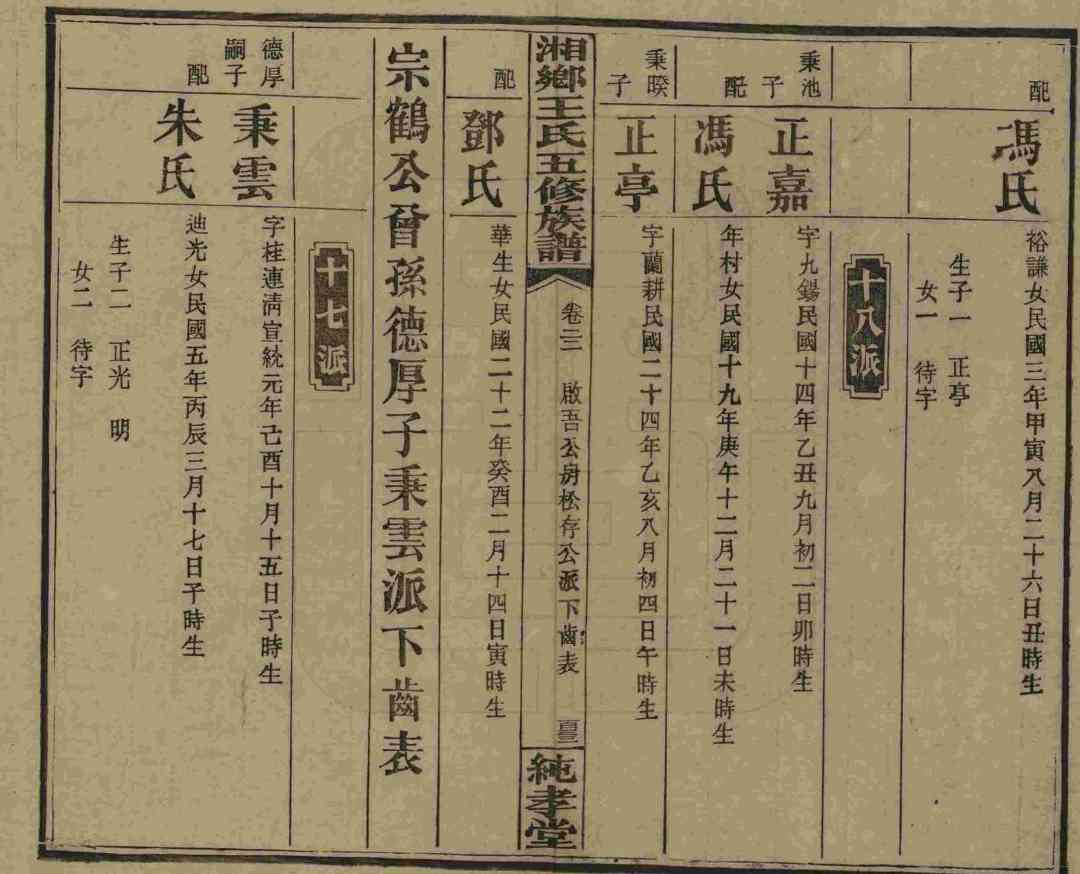 配
馮氏
裕謙女民國三年甲寅八月二十六日丑時生
生子一　正亭
女一　待字
十八派
秉池
子
正嘉
字九錫民國十四年乙丑九月初二日卯時生
配
馮氏
年村女民國十九年庚午十二月二十一日未時生
秉暌
子
正亭
字蘭耕民國二十四年乙亥八月初四日午時生
湘鄉王氏五修族譜
卷三二　啟吾公房松存公派下齒表
純孝堂
配
鄧氏
華生女民國二十二年癸酉二月十四日寅時生
宗鶴公曾孫德厚子秉雲派下齒表
十七派
德厚
嗣子
秉雲
字桂連清宣統元年己酉十月十五日子時生
配
朱氏
迪光女民國五年丙辰三月十七日子時生
生子二　正光　明
女二　待字